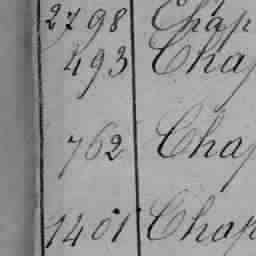 2798 Chap
493 Chap
762 Chap
1401 Chap